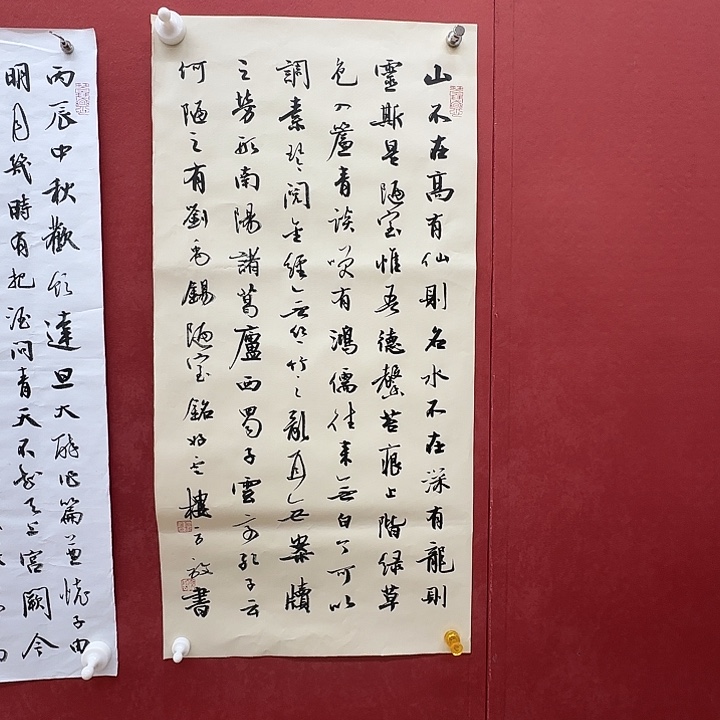 山不在高有仙則名水不在深有龍則
靈斯是陋室惟吾德馨苔痕上階緑草
色入簾青談笑有鴻儒往来無白丁可以
調素琴閱金經無絲竹之亂耳無案牘
之勞形南陽諸葛廬西蜀子雲亭孔子云
何陋之有劉禹錫陋室銘 樓 書
丙辰中秋歡飲達旦大醉作篇兼懷子由
明月幾時有把酒問青天不知天上宮闕今